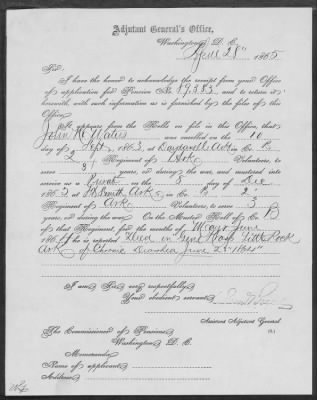 Adjutant General's Office,
Washington, D. C.
April 28th 1865
Sir:
I have the honor to acknowledge the receipt from your Office
of application for Pension No. 89,383, and to return it
herewith, with such information as is furnished by the files of this
Office.
It appears from the Rolls on file in this Office, that
John
was enrolled on the 10
day of Sept, 1863, at Ark in Co.
2 Regiment of Ark Volunteers, to serve
3 years, or during the war, and mustered into
service as a Private on the 8 day of Dec
1863, at Ft Smith, Ark, in Co. 2"
Regiment of Ark Volunteers, to serve 3
years, or during the war. On the Muster Roll of Co. B
of that Regiment, for the months of May & June
1864, he is reported "Died in Genl Hosp Little Rock
Ark of Chronic Diarrhea June 1864"
I am, Sir, very respectfully,
Your obedient servant,
Assistant Adjutant General
The Commissioner of Pensions,
Washington, D. C.
Memoranda:
Name of applicant,
Address,